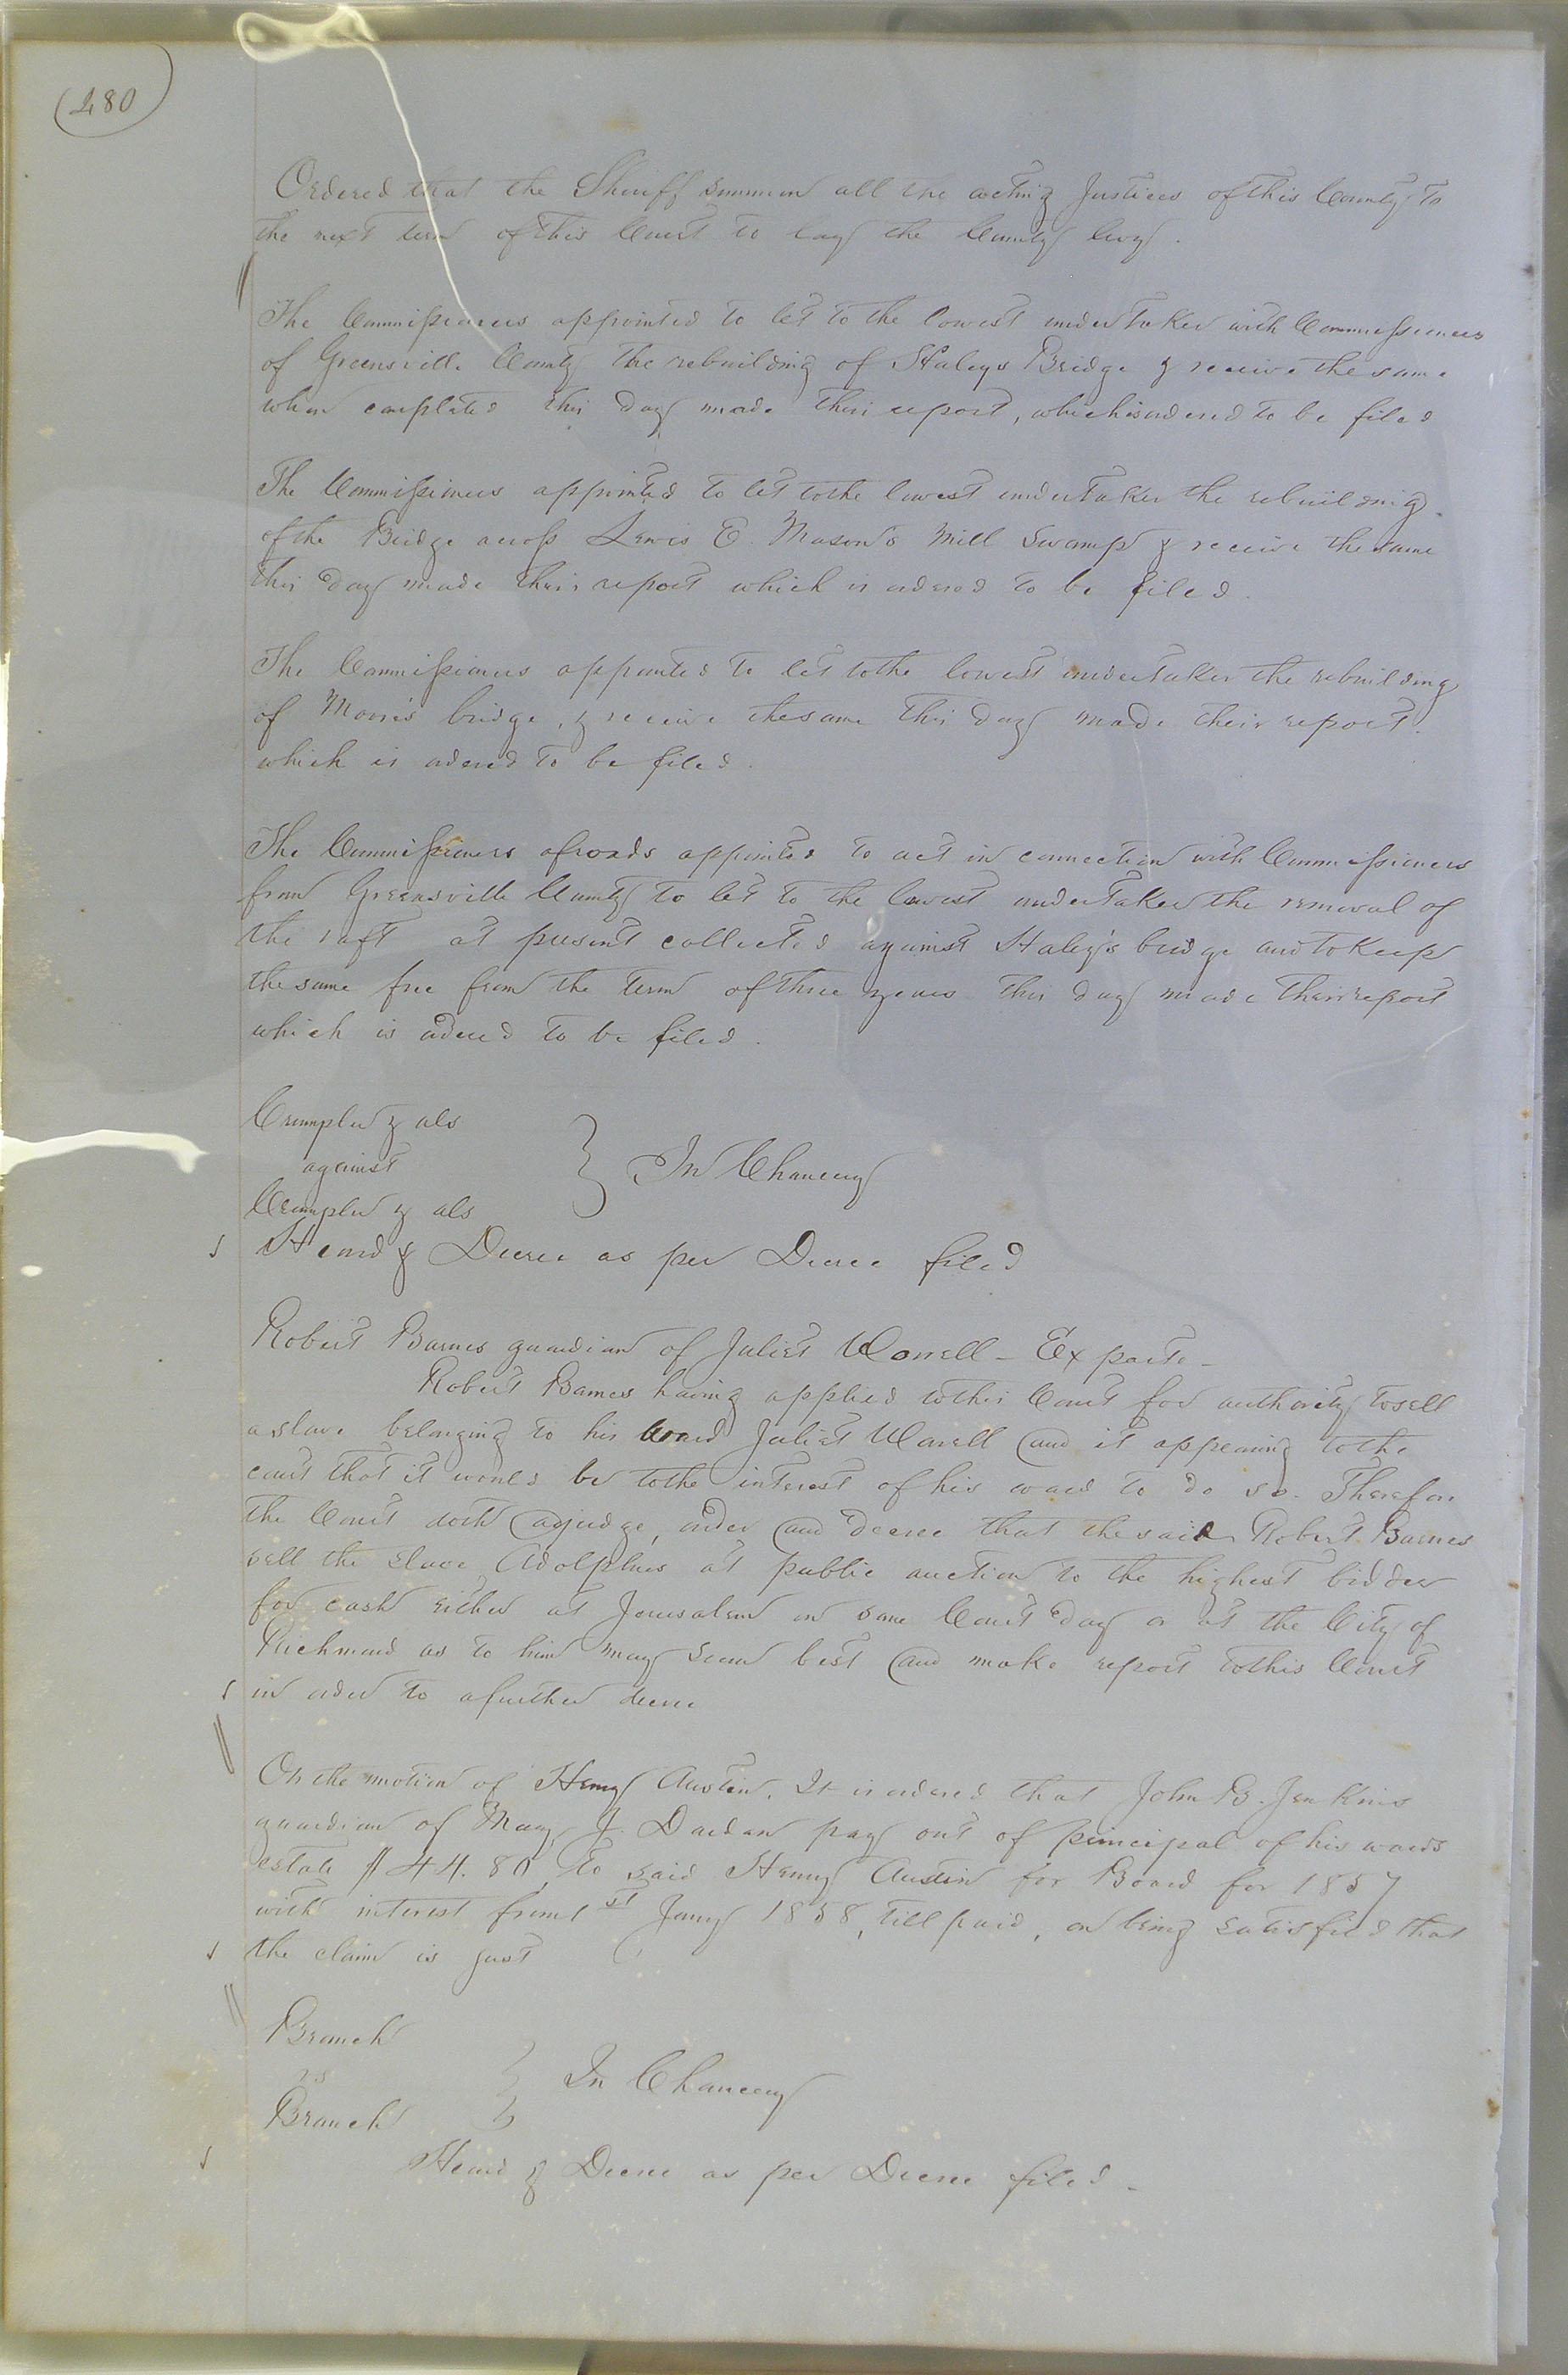 (480)
Ordered that the Sheriff summon all the acting Justices of this County to
the next term of this Court to lay the County levy.
The Commissioners appointed to let to the lowest undertaker with Commissioners
of Greensville County the rebuilding of Haleys Bridge & receive the same
when completed this day made their report, which is ordered to be filed
The Commissioners appointed to let to the lowest undertaker the rebuilding
of the Bridge across Lewis C Mason's Mill Swamp & receive the same
this day made their report which is ordered to be filed.
The Commissioners appointed to let to the lowest undertaker the rebuilding
of Moore's bridge, & receive the same this day made their report.
which is ordered to be filed.
The Commissioners of roads appointed to act in connection with Commissioners
from Greensville County to let to the lowest undertaker the removal of
the raft at present collected against Haley's bridge and to keep
the same free from the term of three years this day made their report
which is ordered to be filed.
Crumpler & als
against
Crumpler & als
} In Chancery
Heard & Decree as per Decree filed
Robert Barnes guardian of Juliet Worrell - Ex parte -
Robert Barnes having applied to this Court for authority to sell
a slave belonging to his ward Juliet Worrell and it appearing to the
court that it would be to the interest of his ward to do so. Therefore
the Court doth adjudge, order and decree that the said Robert Barnes
sell the slave Adolphus at public auction to the highest bidder
for cash either at Jerusalem on some Court day or at the City of
Richmond as to him may seem best and make report to this Court
in order to a further decree
On the motion of Henry Austin. It is ordered that John B. Jenkins
guardian of Mary J. Darden pay out of principal of his wards
estate $44.80 to said Henry Austin for Board for 1857
with interest from 1st Jany 1858, till paid, on being satisfied that
the claim is just
Branch
vs
Branch
} In Chancery
Heard & Decree as per Decree filed -